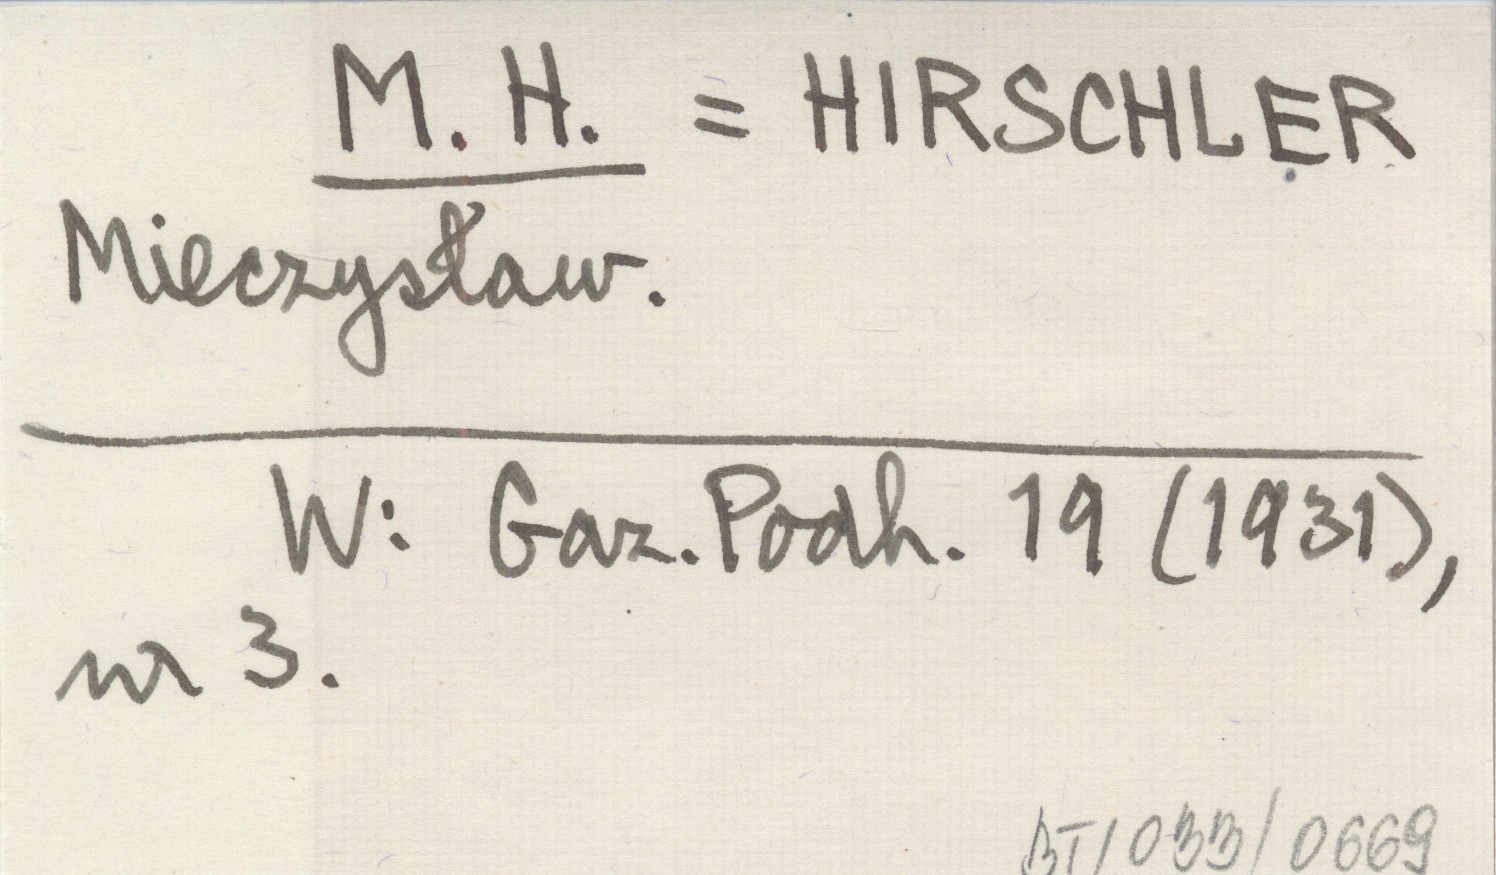 M. H. = HIRSCHLER
Mieczysław.
W: Gaz. Podh. 19 (1931),
nr 3.
BT/033/0669